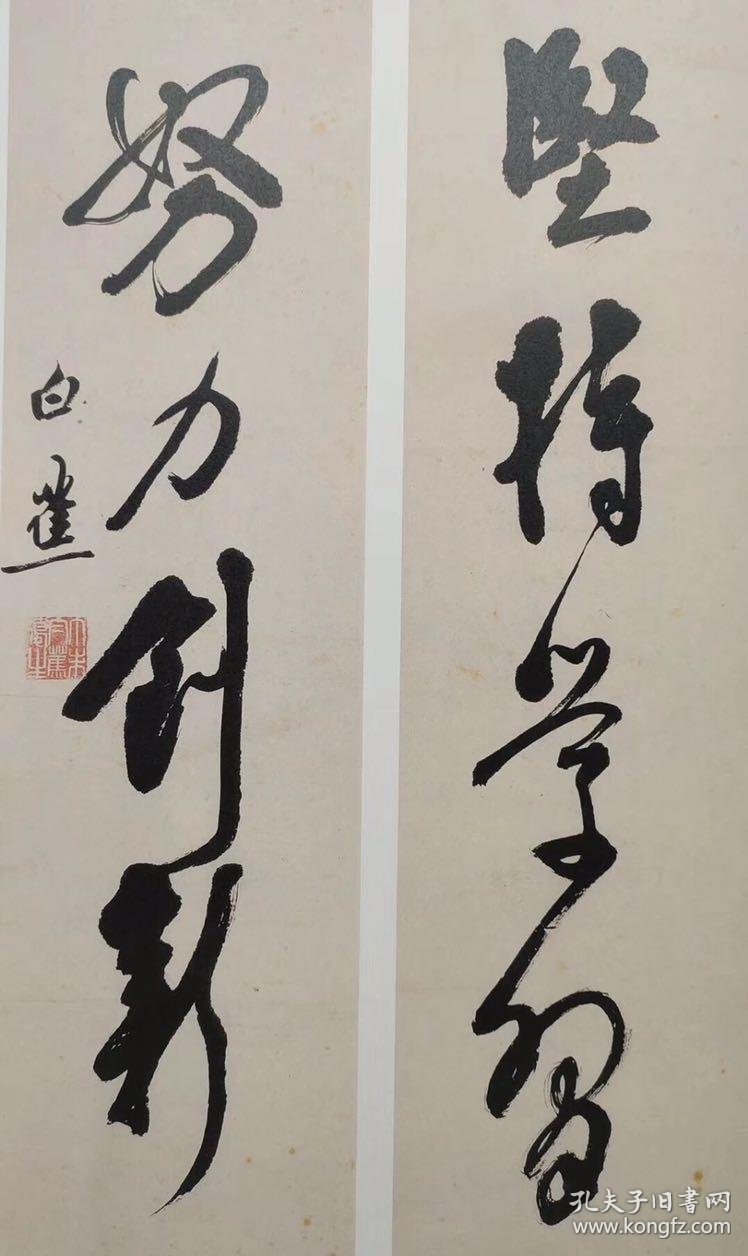 坚持学习
努力创新
白蕉
孔夫子旧書网
www.kongfz.com